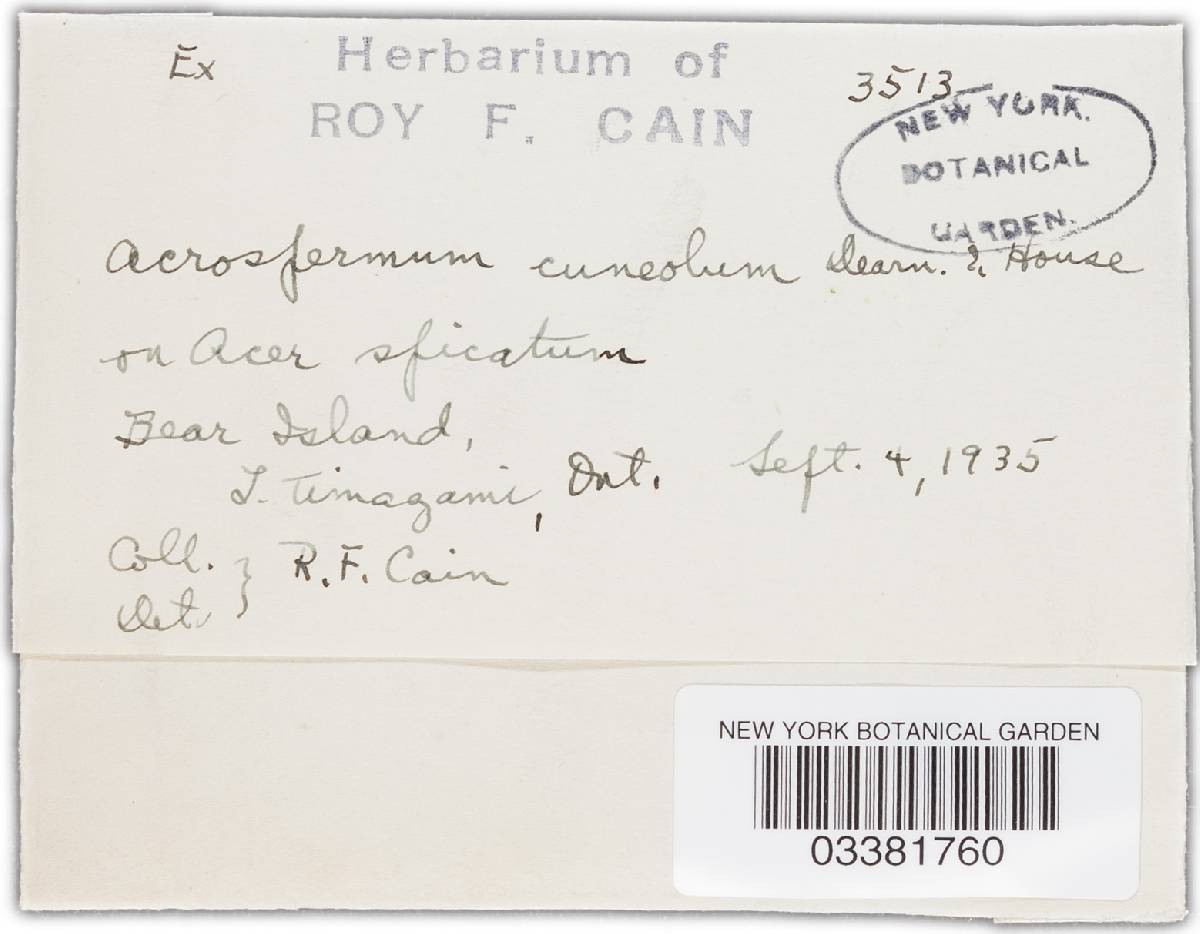 Ex Herbarium of
ROY F. CAIN
3513
NEW YORK
BOTANICAL
GARDEN.
Acrospermum cuneolum Dearn. & House
on Acer spicatum
Bear Island,
L. Timagami, Ont. Sept. 4, 1935
Coll. } R. F. Cain
Det.
NEW YORK BOTANICAL GARDEN
03381760